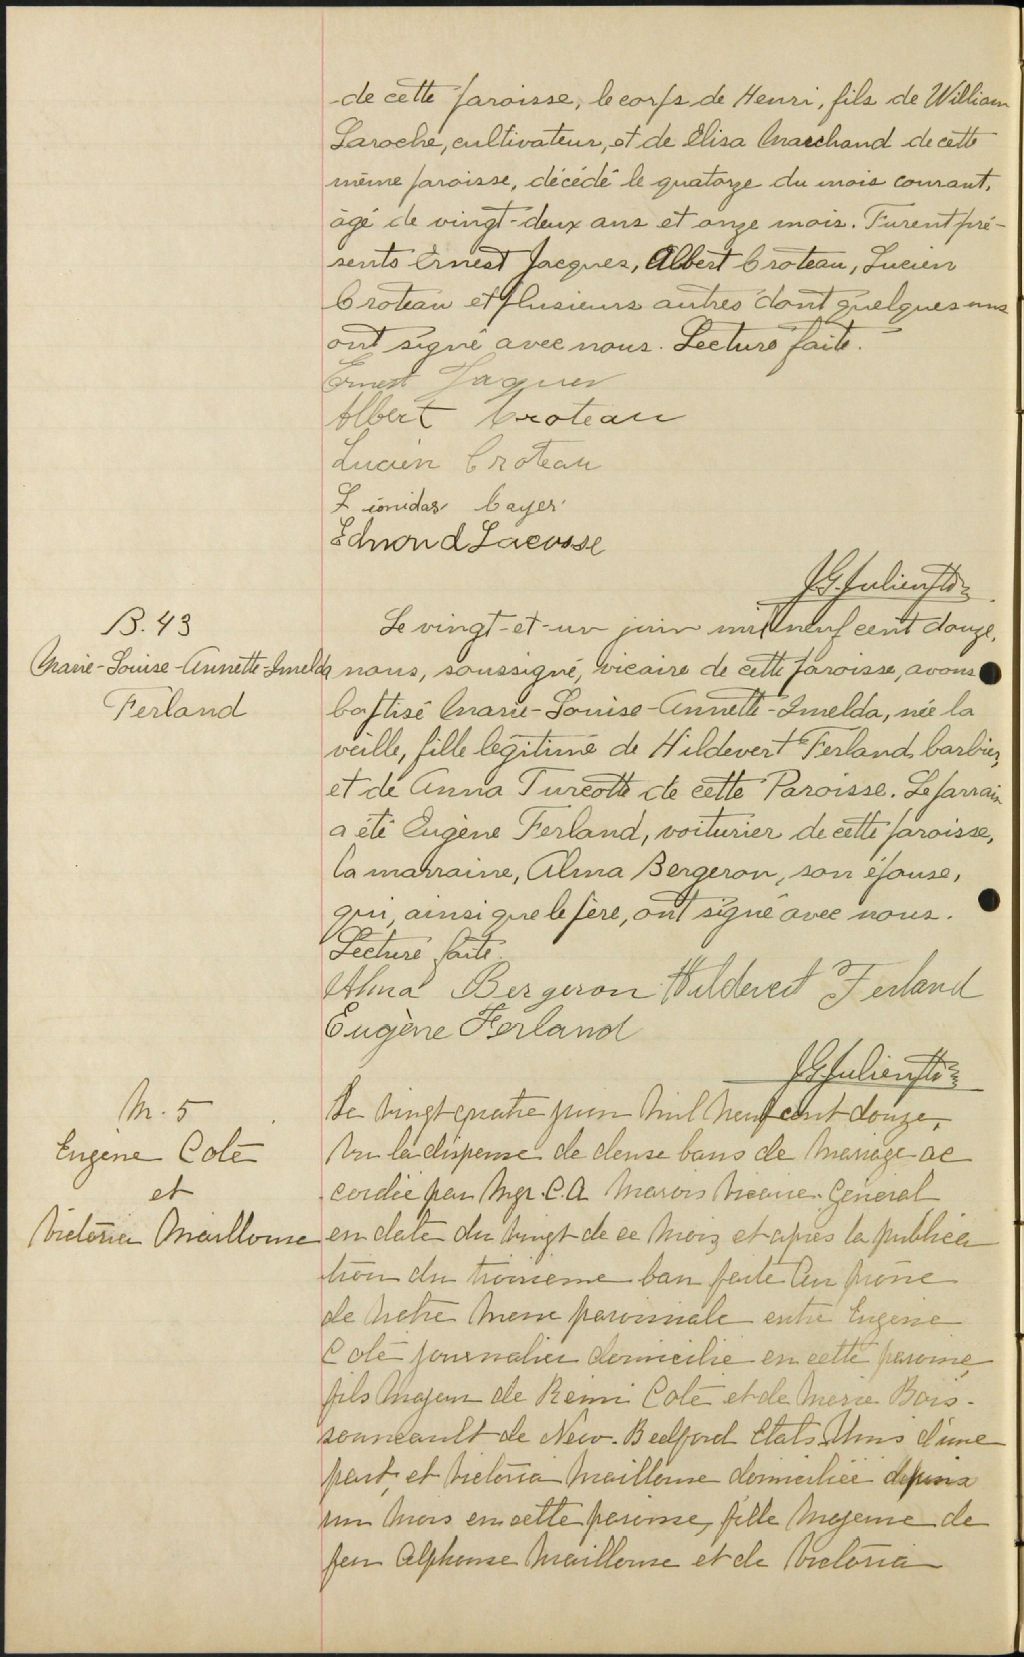 de cette paroisse, le corps de Henri, fils de William
Laroche, cultivateur, et de Elisa Marchand de cette
même paroisse, décédé le quatorze du mois courant,
âgé de vingt-deux ans et onze mois. Furent pré-
sents Ernest Jacques, Albert Croteau, Lucien
Croteau et plusieurs autres dont quelques uns
ont signé avec nous. Lecture faite.
Ernest Jaques
Albert Croteau
Lucien Croteau
Léonidas Cayer
Edmond Lacosse
J.G. Julien ptre
B. 43
Marie-Louise-Annette-Imelda
Ferland
Le vingt-et-un juin mil neuf cent douze,
nous, soussigné, vicaire de cette paroisse, avons
baptisé Marie-Louise-Annette-Imelda, née la
veille, fille légitime de Hildevert Ferland, barbier,
et de Anna Turcotte de cette Paroisse. Le parrain
a été Eugène Ferland, voiturier de cette paroisse,
la marraine, Alma Bergeron, son épouse,
qui, ainsi que le père, ont signé avec nous.
Lecture faite.
Alma Bergeron Hildevert Ferland
Eugène Ferland
J.G. Julien ptre
M. 5
Eugène Coté
et
Victoria Mailloux
Le vingt quatre juin mil neuf cent douze,
Vu la dispense de deux bans de mariage ac
cordée par Mgr. C.A Marois Vicaire. Général
en date du vingt de ce mois et après la publica
tion du troisième ban faite au prône
de notre messe paroissiale entre Eugène
Coté journalier domicilié en cette paroisse,
fils majeur de Rémi Coté et de Marie Bois-
sonneault de New-Bedford Etats-Unis d'une
part, et Victoria Mailloux domiciliée depuis
un mois en cette paroisse, fille majeure de
feu Alphonse Mailloux et de Victoria